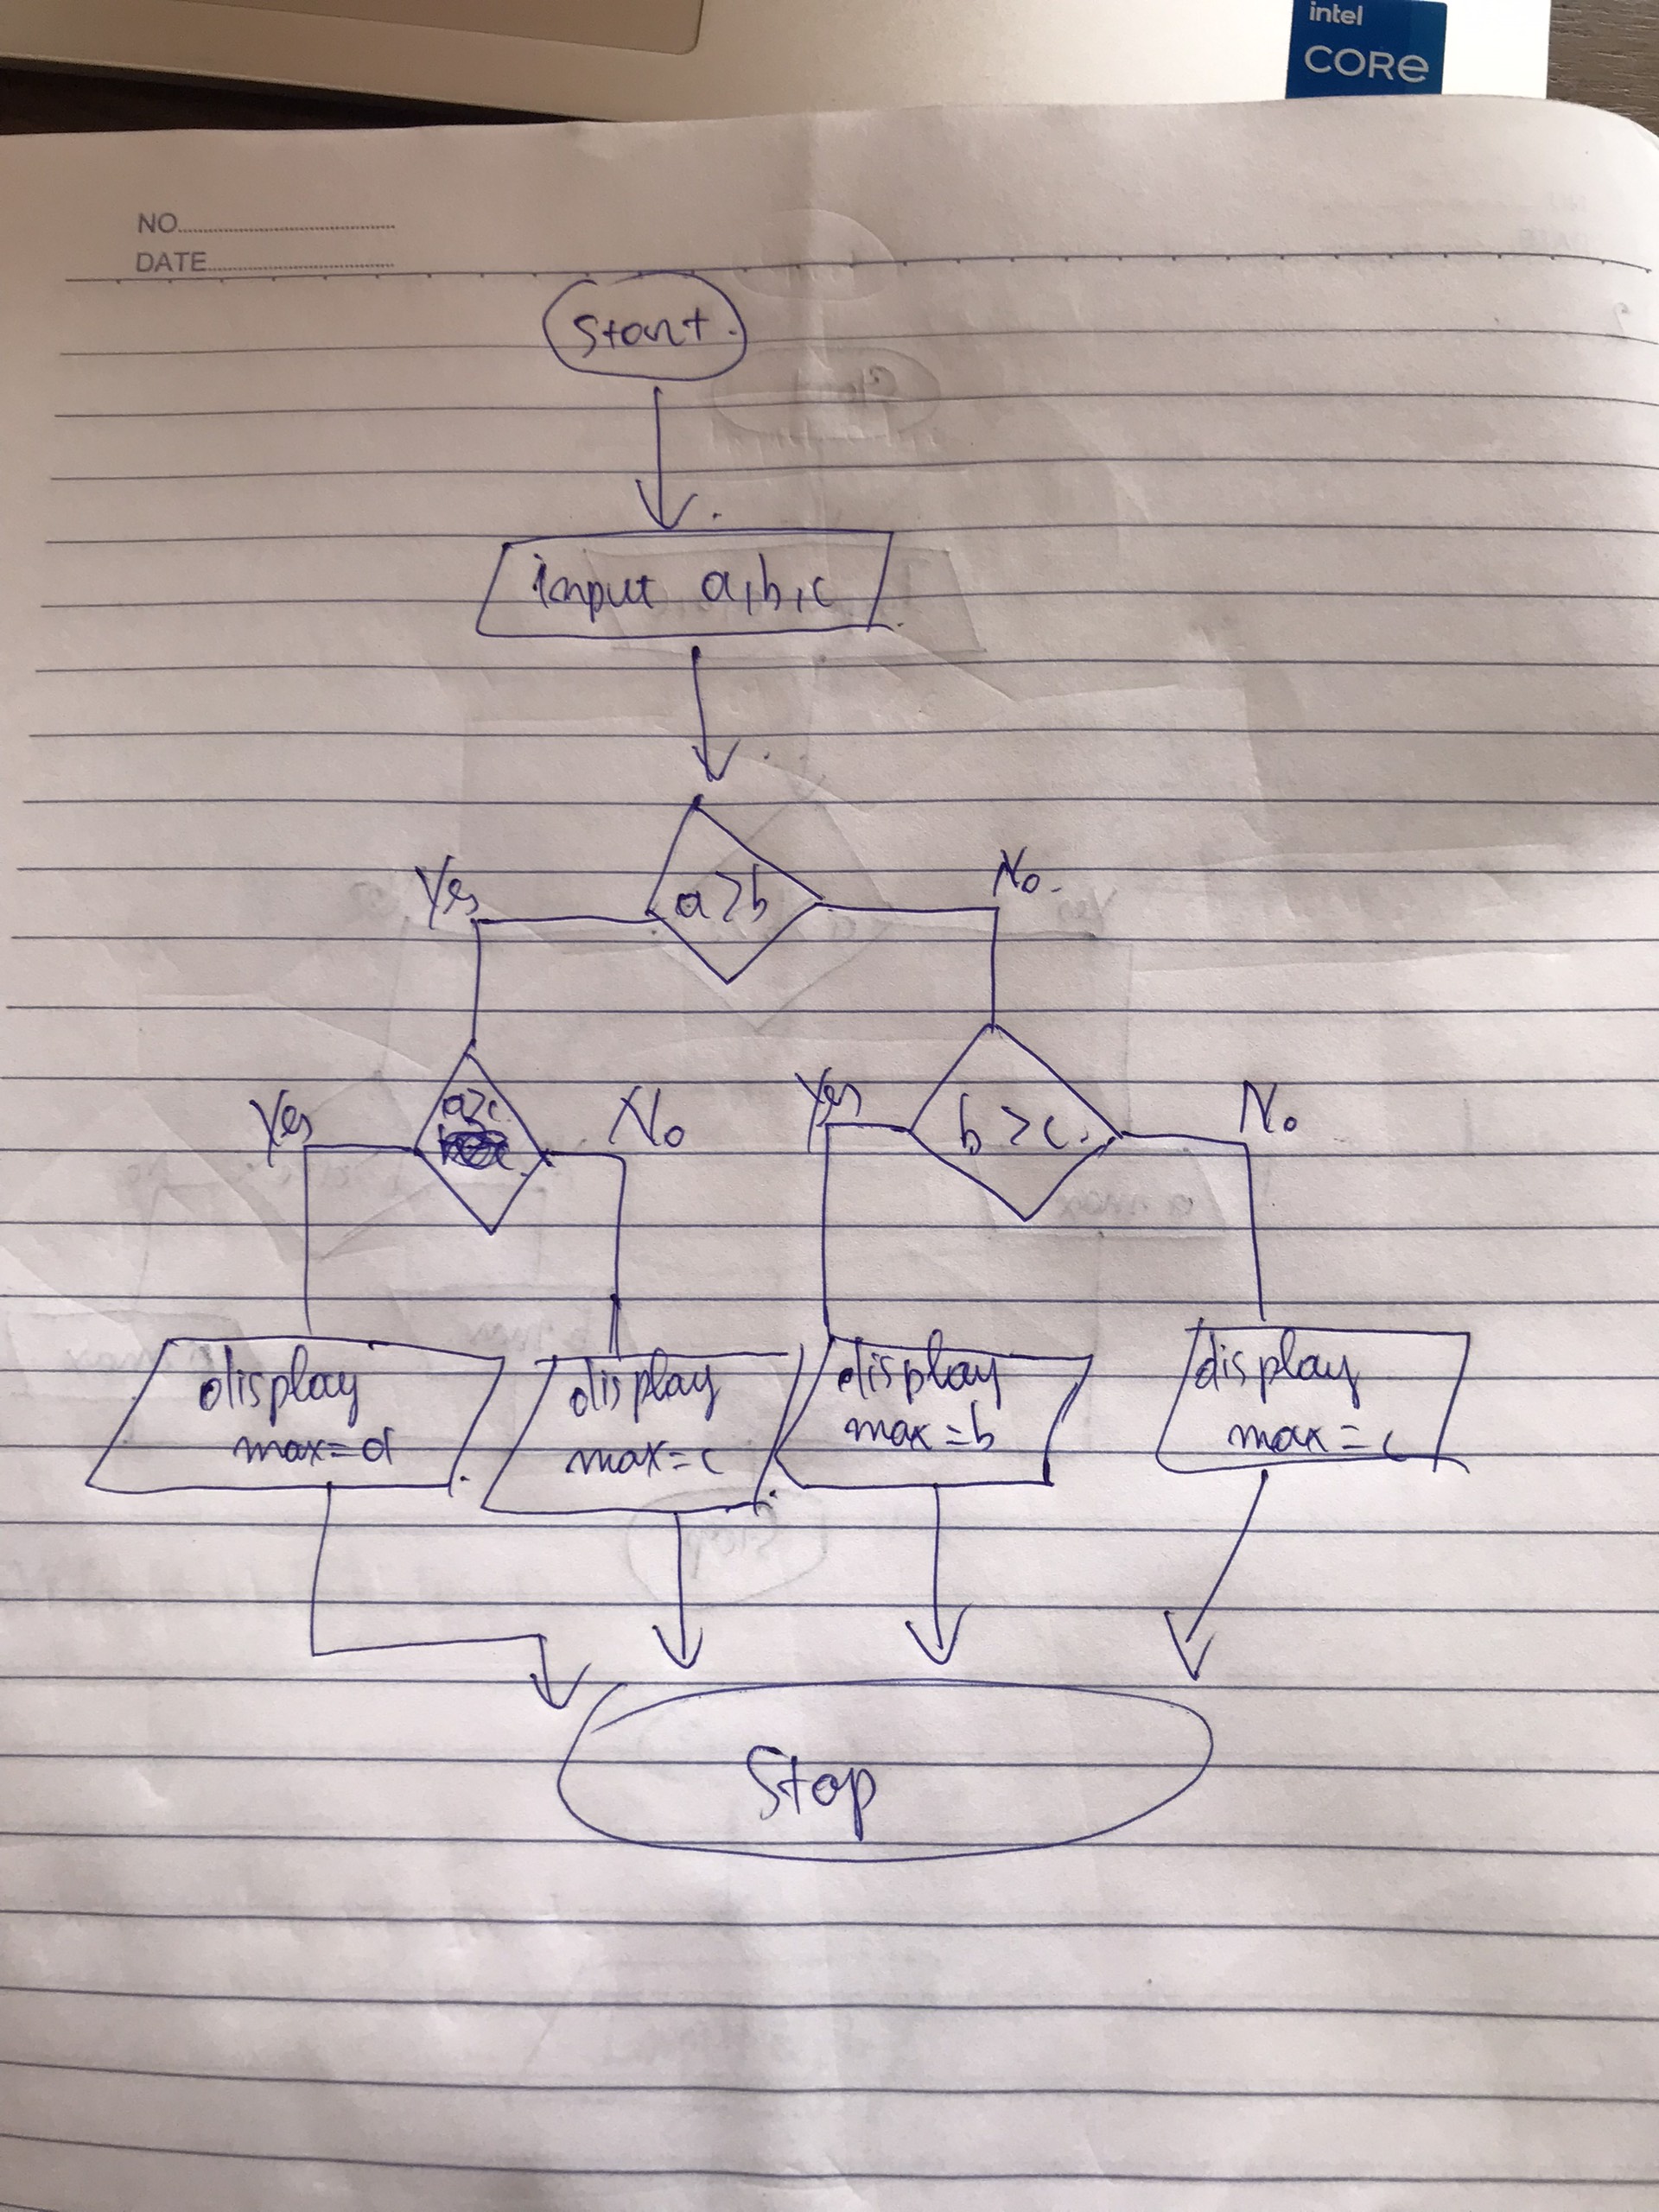 intel
CORe
NO.
DATE
Start.
input a,b,c
a>b
Yes
No.
a>c
Yes
No
b>c.
Yes
No
display
max=a
display
max=c
display
max=b
display
max=c
Stop